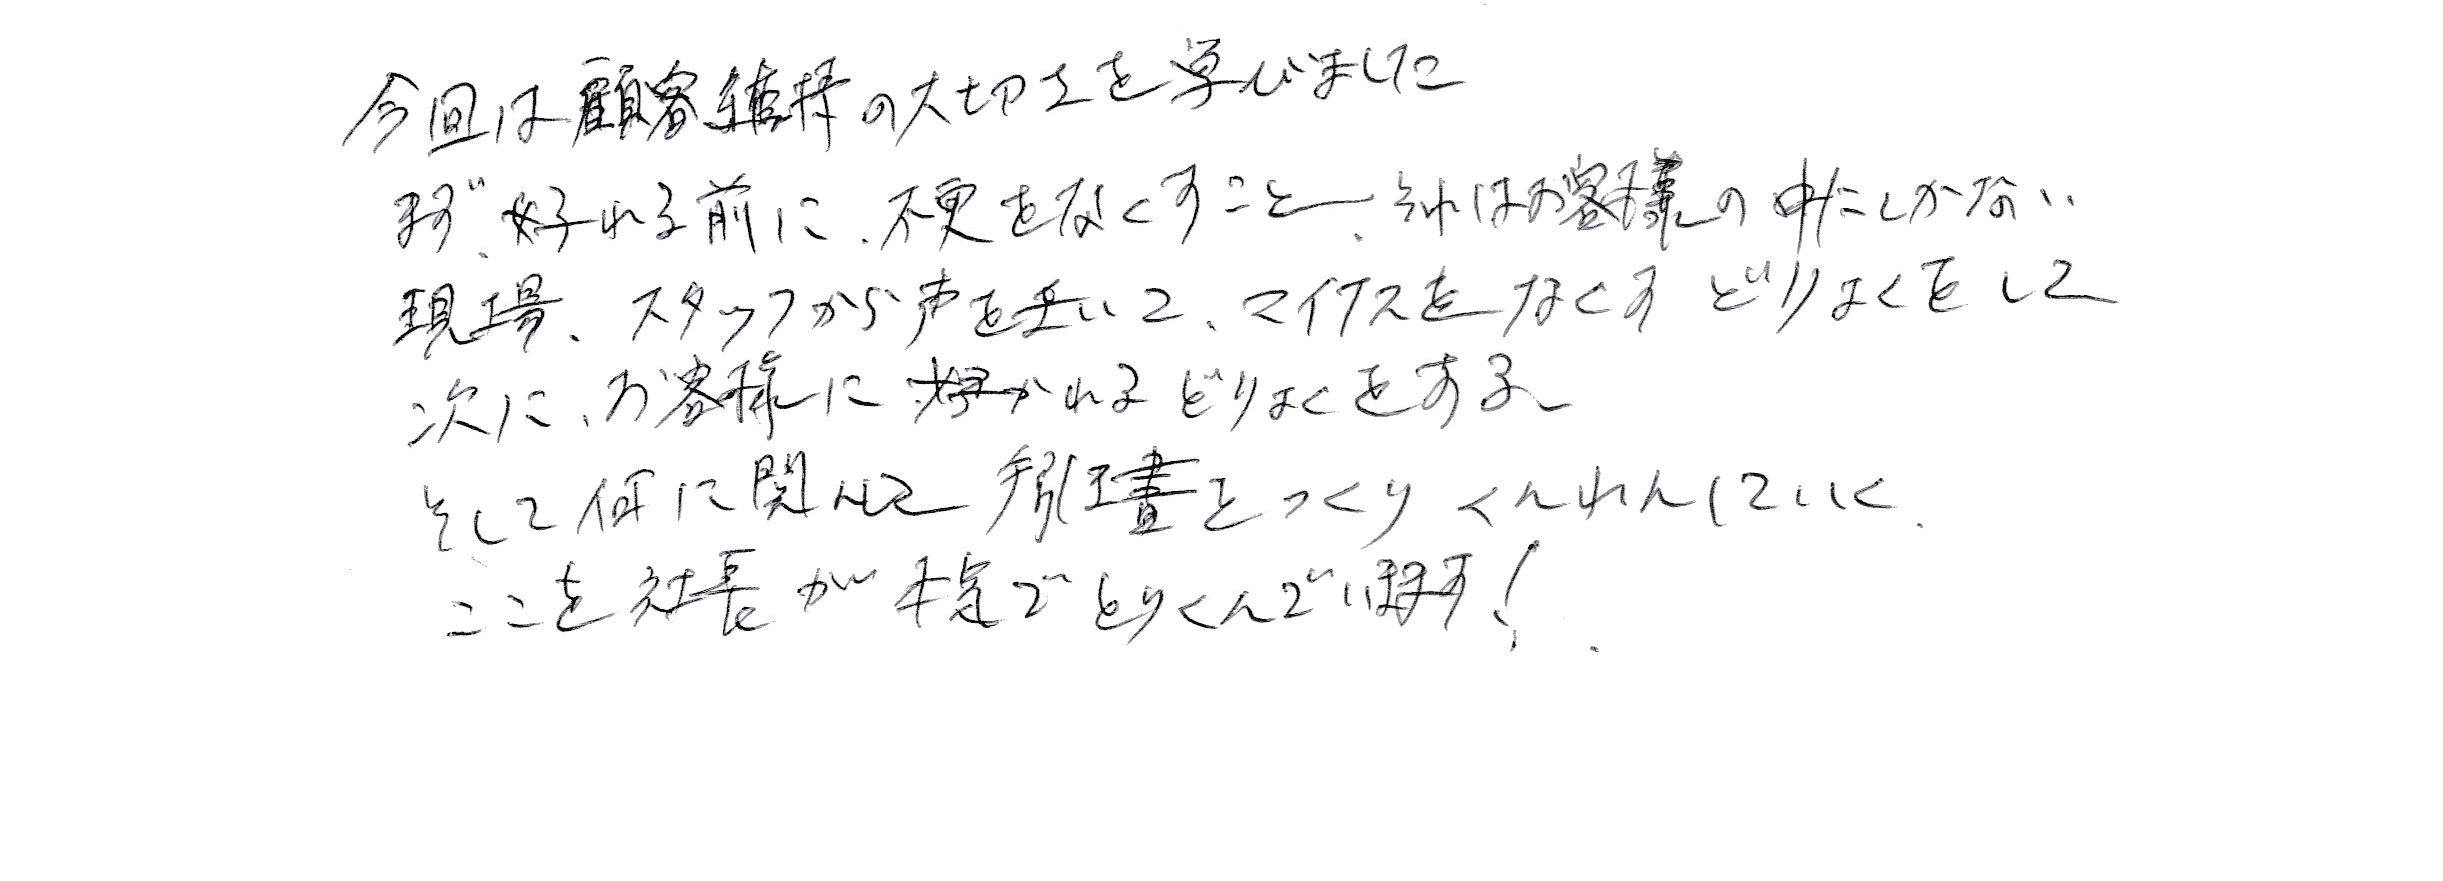 今回は顧客維持の大切さを学びました
まず、好れる前に、不便をなくすこと、それはお客様の中にしかない
現場、スタッフから声を聞いて、マイナスをなくすどりょくをして
次に、お客様に好かれるどりょくをする
そして何に関して 手引書をつくり くんれんしていく
ここを社長が本気でとりくんでいます！